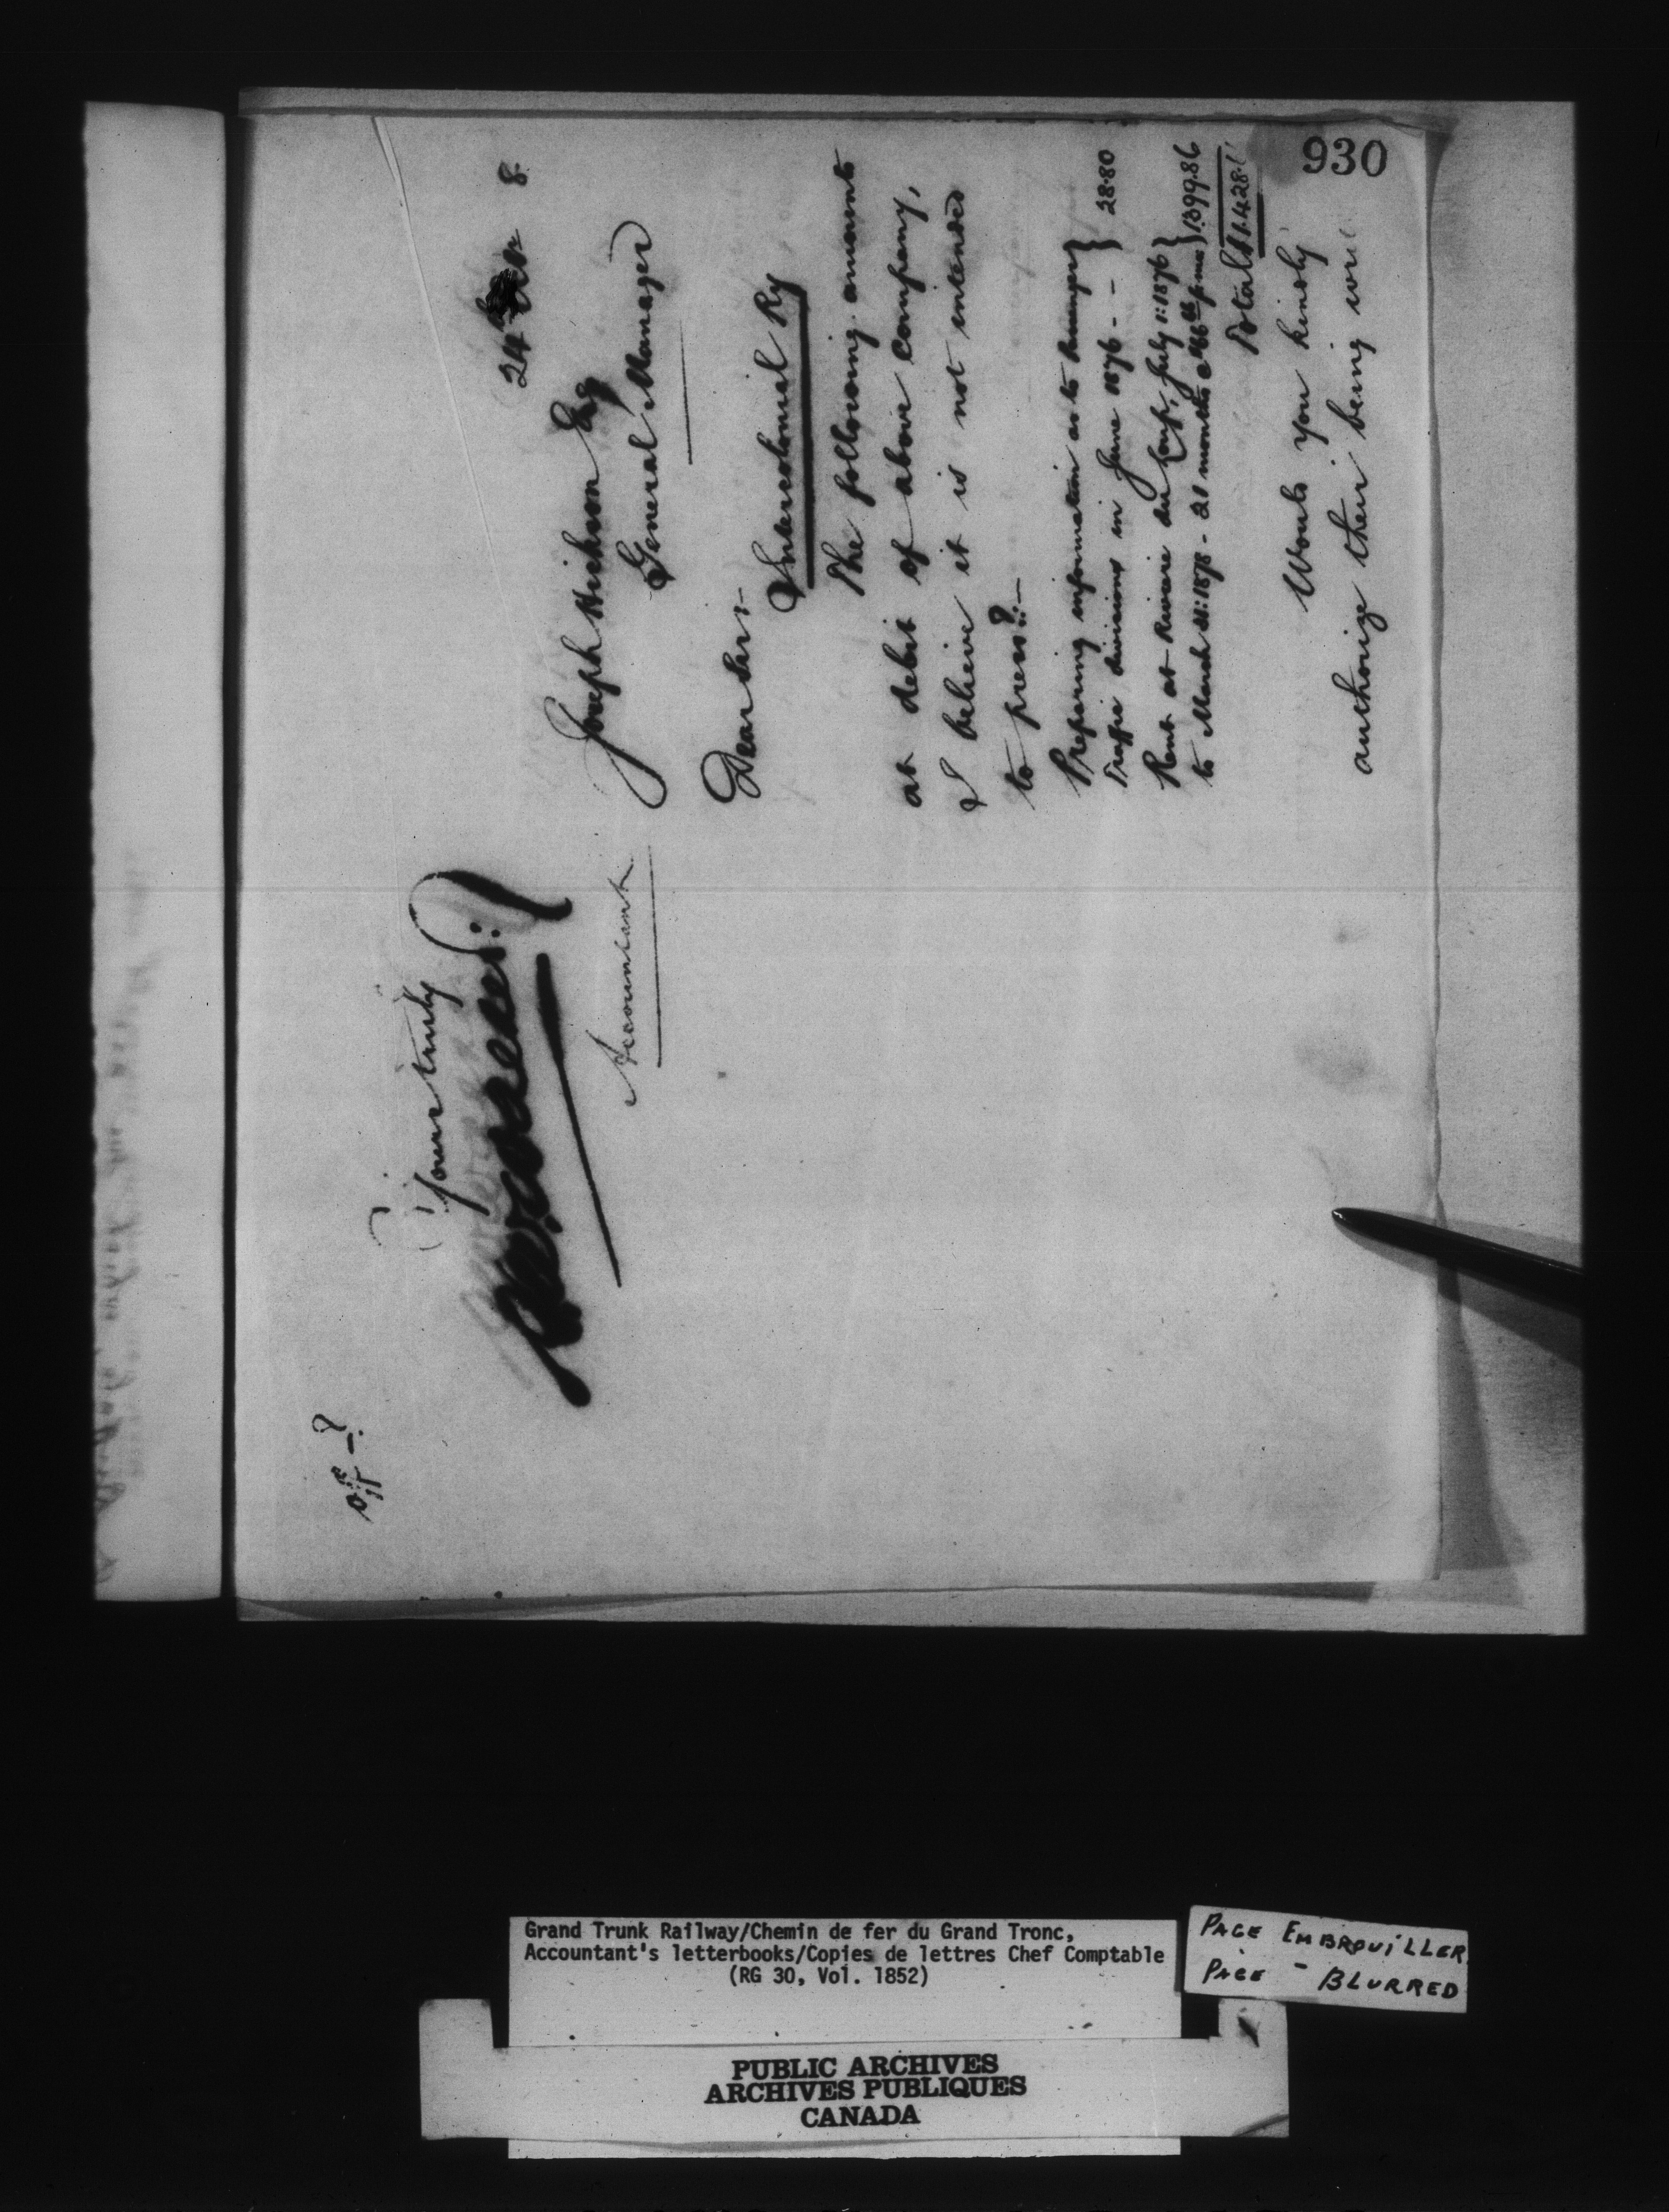 930
24 8
Joseph Hickson Esq
General Manager
Dear Sir:-
Intercolonial Ry
The following amounts
at debit of above Company,
I believe it is not intended
to press?:-
Preparing information as to
Traffic divisions in June 1876 - - } 28.80
Rent at Riviere du Loup, July 1:1876 }
to March 31:1878 - 21 months @ 66 } 1399.86
Total $1.428.
Would you kindly
authorize their being
off - ?
Yours truly
Accountant
Grand Trunk Railway/Chemin de fer du Grand Tronc,
Accountant's letterbooks/Copies de lettres Chef Comptable
(RG 30, Vol. 1852)
PAGE EMBROUILLER
PAGE - BLURRED
PUBLIC ARCHIVES
ARCHIVES PUBLIQUES
CANADA